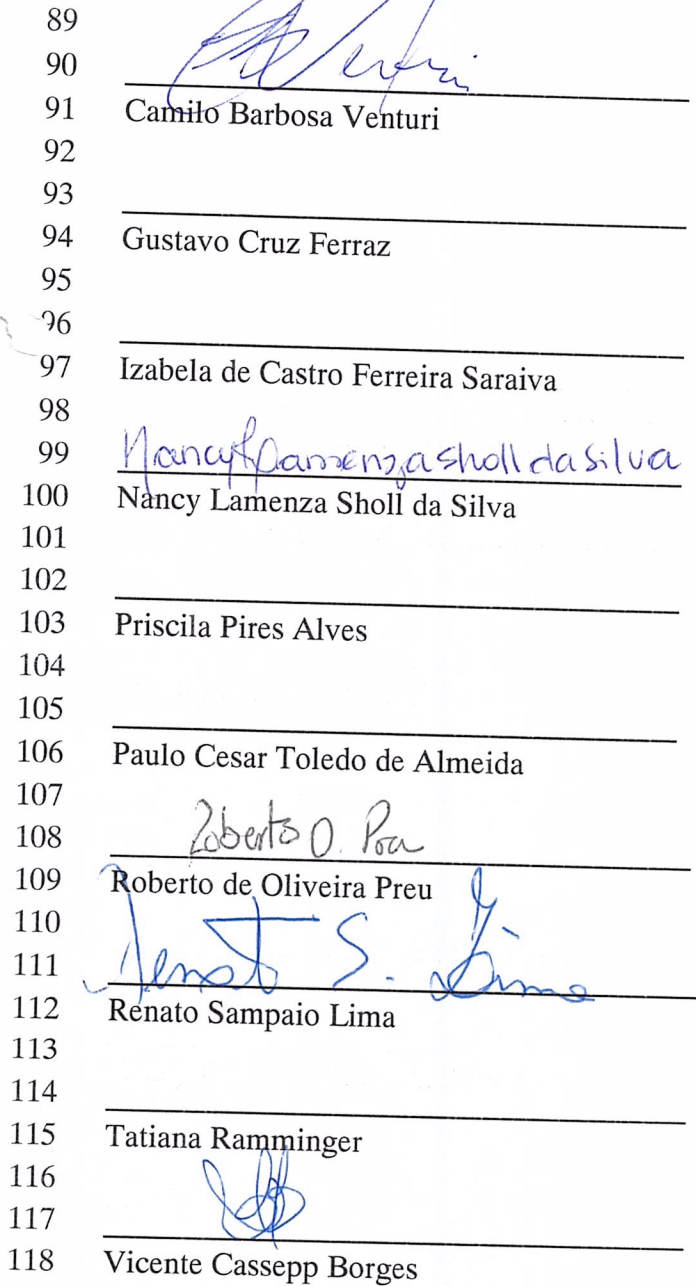 89
90
91 Camilo Barbosa Venturi
92
93
94 Gustavo Cruz Ferraz
95
96
97 Izabela de Castro Ferreira Saraiva
98
99 Nancy Lamenza Sholl da Silva
100 Nancy Lamenza Sholl da Silva
101
102
103 Priscila Pires Alves
104
105
106 Paulo Cesar Toledo de Almeida
107
108 Roberto O.
109 Roberto de Oliveira Preu
110
111 Renato S. Lima
112 Renato Sampaio Lima
113
114
115 Tatiana Ramminger
116
117
118 Vicente Cassepp Borges